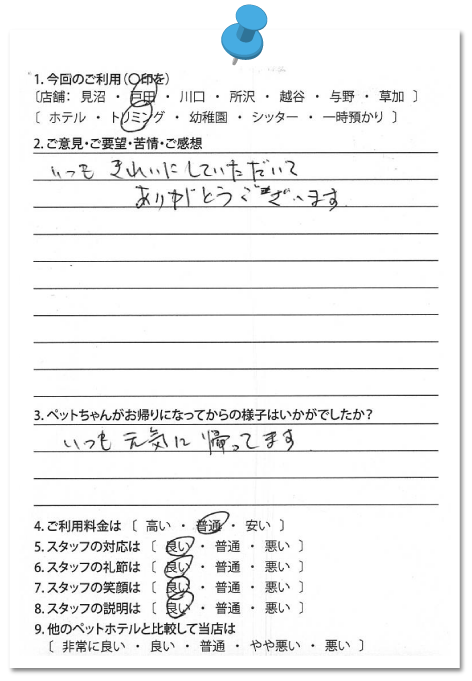 1. 今回のご利用(〇印を)
〔店舗： 見沼 ・ 戸田 ・ 川口 ・ 所沢 ・ 越谷 ・ 与野 ・ 草加 〕
〔 ホテル ・ トリミング ・ 幼稚園 ・ シッター ・ 一時預かり 〕
2. ご意見・ご要望・苦情・ご感想
いつも きれいにしていただいて
ありがとうございます
3. ペットちゃんがお帰りになってからの様子はいかがでしたか？
いつも 元気に 帰ってます
4. ご利用料金は 〔 高い ・ 普通 ・ 安い 〕
5. スタッフの対応は 〔 良い ・ 普通 ・ 悪い 〕
6. スタッフの礼節は 〔 良い ・ 普通 ・ 悪い 〕
7. スタッフの笑顔は 〔 良い ・ 普通 ・ 悪い 〕
8. スタッフの説明は 〔 良い ・ 普通 ・ 悪い 〕
9. 他のペットホテルと比較して当店は
〔 非常に良い ・ 良い ・ 普通 ・ やや悪い ・ 悪い 〕